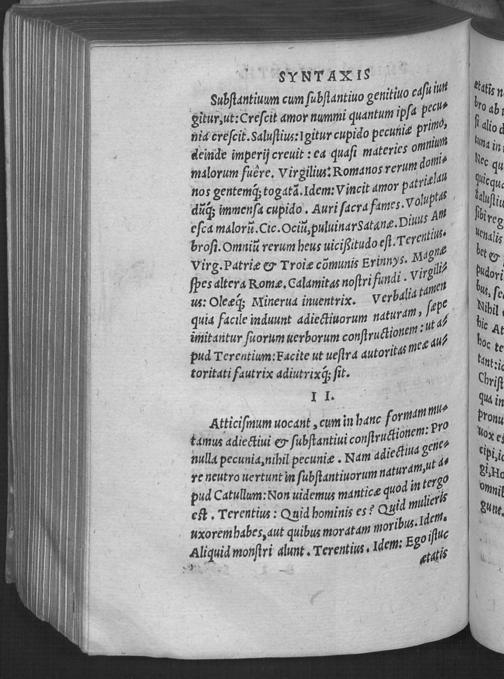 SYNTAXIS
Substantiuum cum substantiuo genitiuo casu iun
gitur, ut: Crescit amor nummi quantum ipsa pecu-
nia crescit. Salustius: Igitur cupido pecuniæ primo,
deinde imperij creuit: ea quasi materies omnium
malorum fuêre. Virgilius: Romanos rerum domi-
nos gentemq́; togatā. Idem: Vincit amor patriæ lau
dūq́; immensa cupido. Auri sacra fames. Voluptas
esca malorū. Cic. Ociū, puluinar Satanæ. Diuus Am
brosi. Omniū rerum heus uicißitudo est. Terentius.
Virg. Patriæ & Troiæ cōmunis Erinnys. Magnæ
spes altera Romæ. Calamitas nostri fundi. Virgili-
us: Oleæq́; Minerua inuentrix. Verbalia tamen
quia facile induunt adiectiuorum naturam, sæpe
imitantur suorum uerborum constructionem: ut a-
pud Terentium: Facite ut uestra autoritas meæ au-
toritati fautrix adiutrixq́; sit.
II.
Atticismum uocant, cum in hanc formam mu-
tamus adiectiui & substantiui constructionem: Pro
nulla pecunia, nihil pecuniæ. Nam adiectiua gene-
re neutro uertunt in substantiuorum naturam, ut a-
pud Catullum: Non uidemus manticæ quod in tergo
est. Terentius: Quid hominis es? Quid mulieris
uxorem habes, aut quibus moratam moribus. Idem.
Aliquid monstri alunt. Terentius. Idem: Ego istuc
ætatis
ætatis n
bro ab
si alio d
tuna in
Nec qu
quicqu
Salustiu
sibi reg
uenalis
bet &
pudori
bus, se
Nihil
hic At
hoc te
tant: i
Christ
qua in
pronu
uox e
cipi, i
gi, Ho
omnib
gunt.